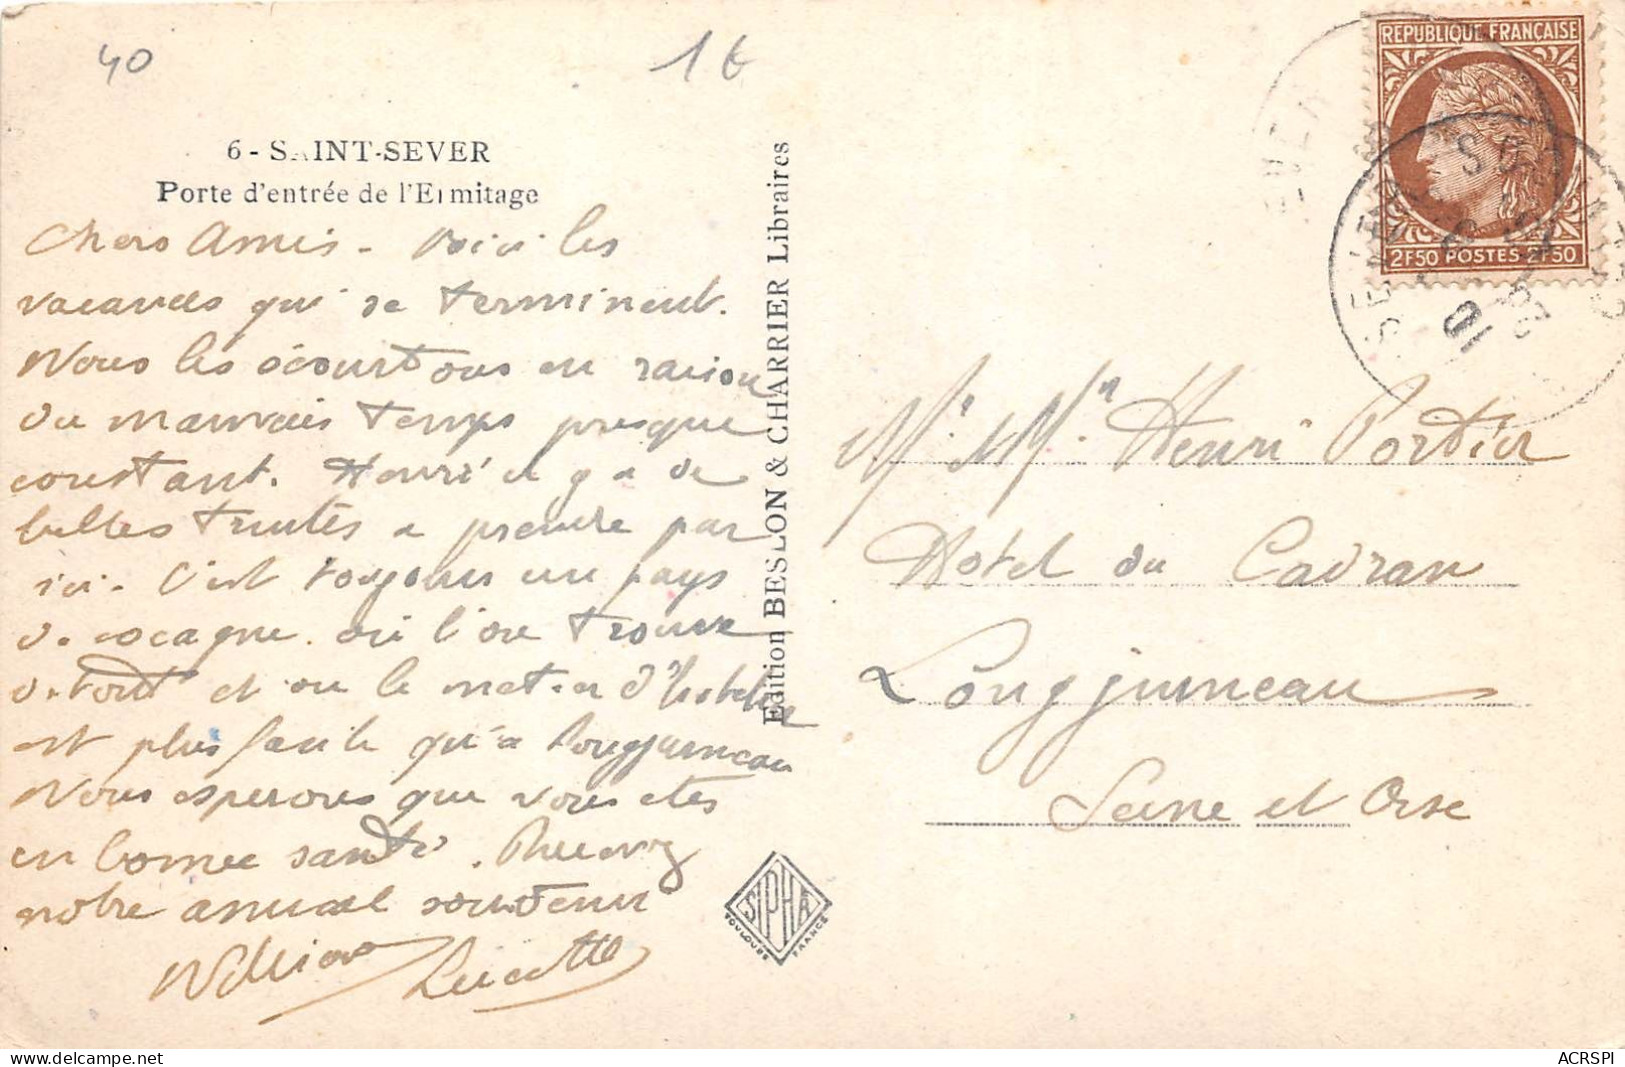 40
1€
6 - SAINT-SEVER
Porte d'entrée de l'Ermitage
Chers Amis - Voici les
vacances qui se terminent.
Nous les écourtons en raison
du mauvais temps presque
constant. Henri il y a de
belles truites a prendre par
ici. C'est toujours un pays
de cocagne où l'on trouve
de tout et ou le metier d'hotelier
est plus facile qu'a Longjumeau
Nous esperons que vous etes
en bonne santé. Recevez
notre annuel souvenir
Lucette
Edition BESLON & CHARRIER Libraires
SIPHA
TOULOUSE FRANCE
REPUBLIQUE FRANÇAISE
2F50 POSTES 2F50
Mr. Mme. Henri Portier
Hôtel du Cadran
Longjumeau
Seine et Oise
ACRSPI